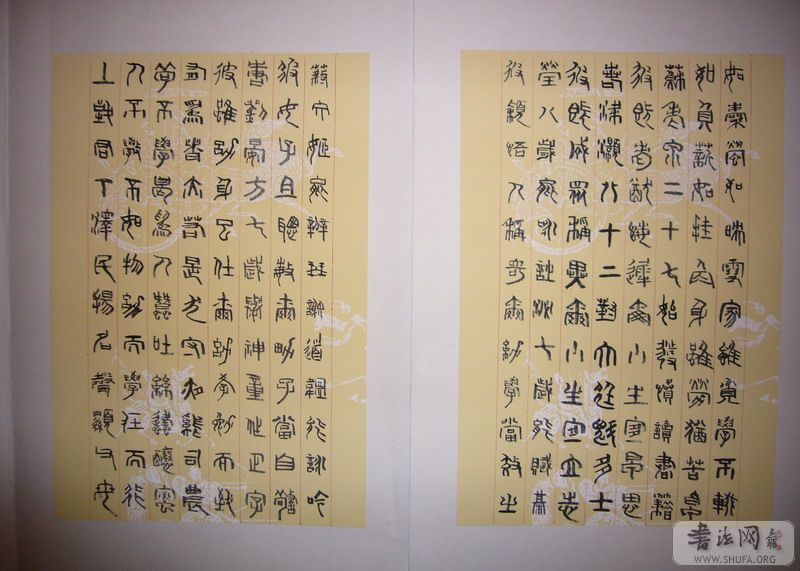 如囊螢如映雪家雖貧學不輟
如負薪如挂角身雖勞猶苦卓
蘇老泉二十七始發憤讀書籍
彼既老猶悔遲爾小生宜早思
若梁灝八十二對大廷魁多士
彼既成眾稱異爾小生宜立志
瑩八歲能詠詩泌七歲能賦棊
彼穎悟人稱奇爾幼學當效之
蔡文姬能辨琴謝道韞能詠吟
彼女子且聰敏爾男子當自警
唐劉晏方七歲舉神童作正字
彼雖幼身已仕爾幼學勉而致
有爲者亦若是犬守夜雞司晨
苟不學曷爲人蠶吐絲蜂釀蜜
人不學不如物幼而學壯而行
上致君下澤民揚名聲顯父母
书法网
WWW.SHUFA.ORG